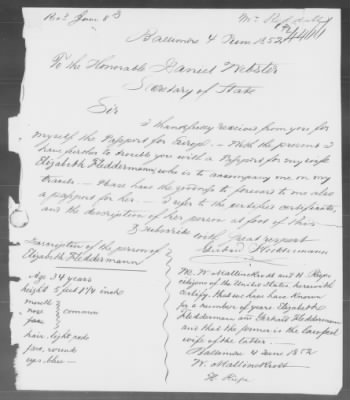 Recd June 8
Baltimore 4 June 1852
To the Honorable Daniel Webster
Secretary of State
Sir
I thankfully received from you for
myself the Passport for Europe. — With the present I
have further to trouble you with a Passport for my wife
Elizabeth Fleddermann, who is to accompany me on my
travels. — Please have the goodness to forward to me also
a passport for her. — I refer to the certificate
and the description of her person at foot of this —
I subscribe with great respect
Gerhard Fleddermann
Description of the person of
Elizabeth Fleddermann
Age 34 years
height 5 feet 1 3/4 inch
mouth
nose } common
face
hair, light, red
face, round
eyes, blue —
We W. Mallinckrodt and H. Rape
citizens of the United States herewith
certify, that we have known
for a number of years Elizabeth
Fleddermann and Gerhard Fleddermann
and that the former is the lawful
wife of the latter. —
Baltimore 4 June 1852
W. Mallinckrodt
H. Rape